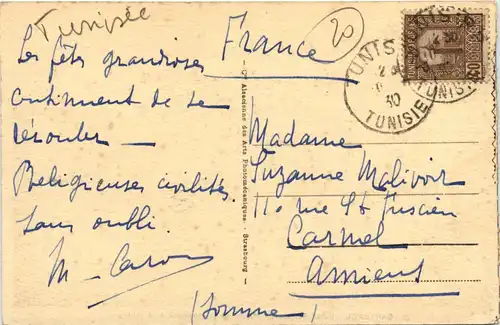 Tunisie
20
France
Les fêtes grandioses
continuent de se
dérouler –
Religieuses civilités
Sans oubli.
M – Caron
Cie Alsacienne des Arts Photomécaniques - Strasbourg
TUNIS
30
TUNISIE
Madame
Suzanne Malivoir
110 rue St Fuscien
Carmel
Amiens
(Somme)